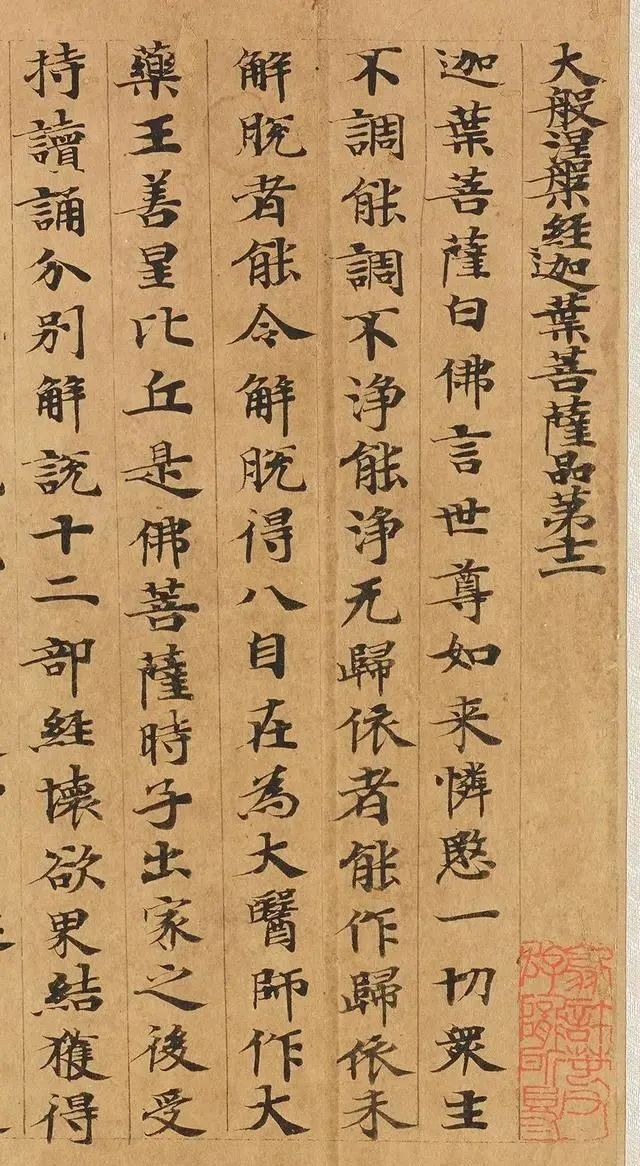 大般涅槃經迦葉菩薩品第十二
迦葉菩薩白佛言世尊如来憐愍一切眾生
不調能調不淨能淨无歸依者能作歸依未
解脫者能令解脫得八自在為大醫師作大
藥王善星比丘是佛菩薩時子出家之後受
持讀誦分別解說十二部經壞欲界結獲得